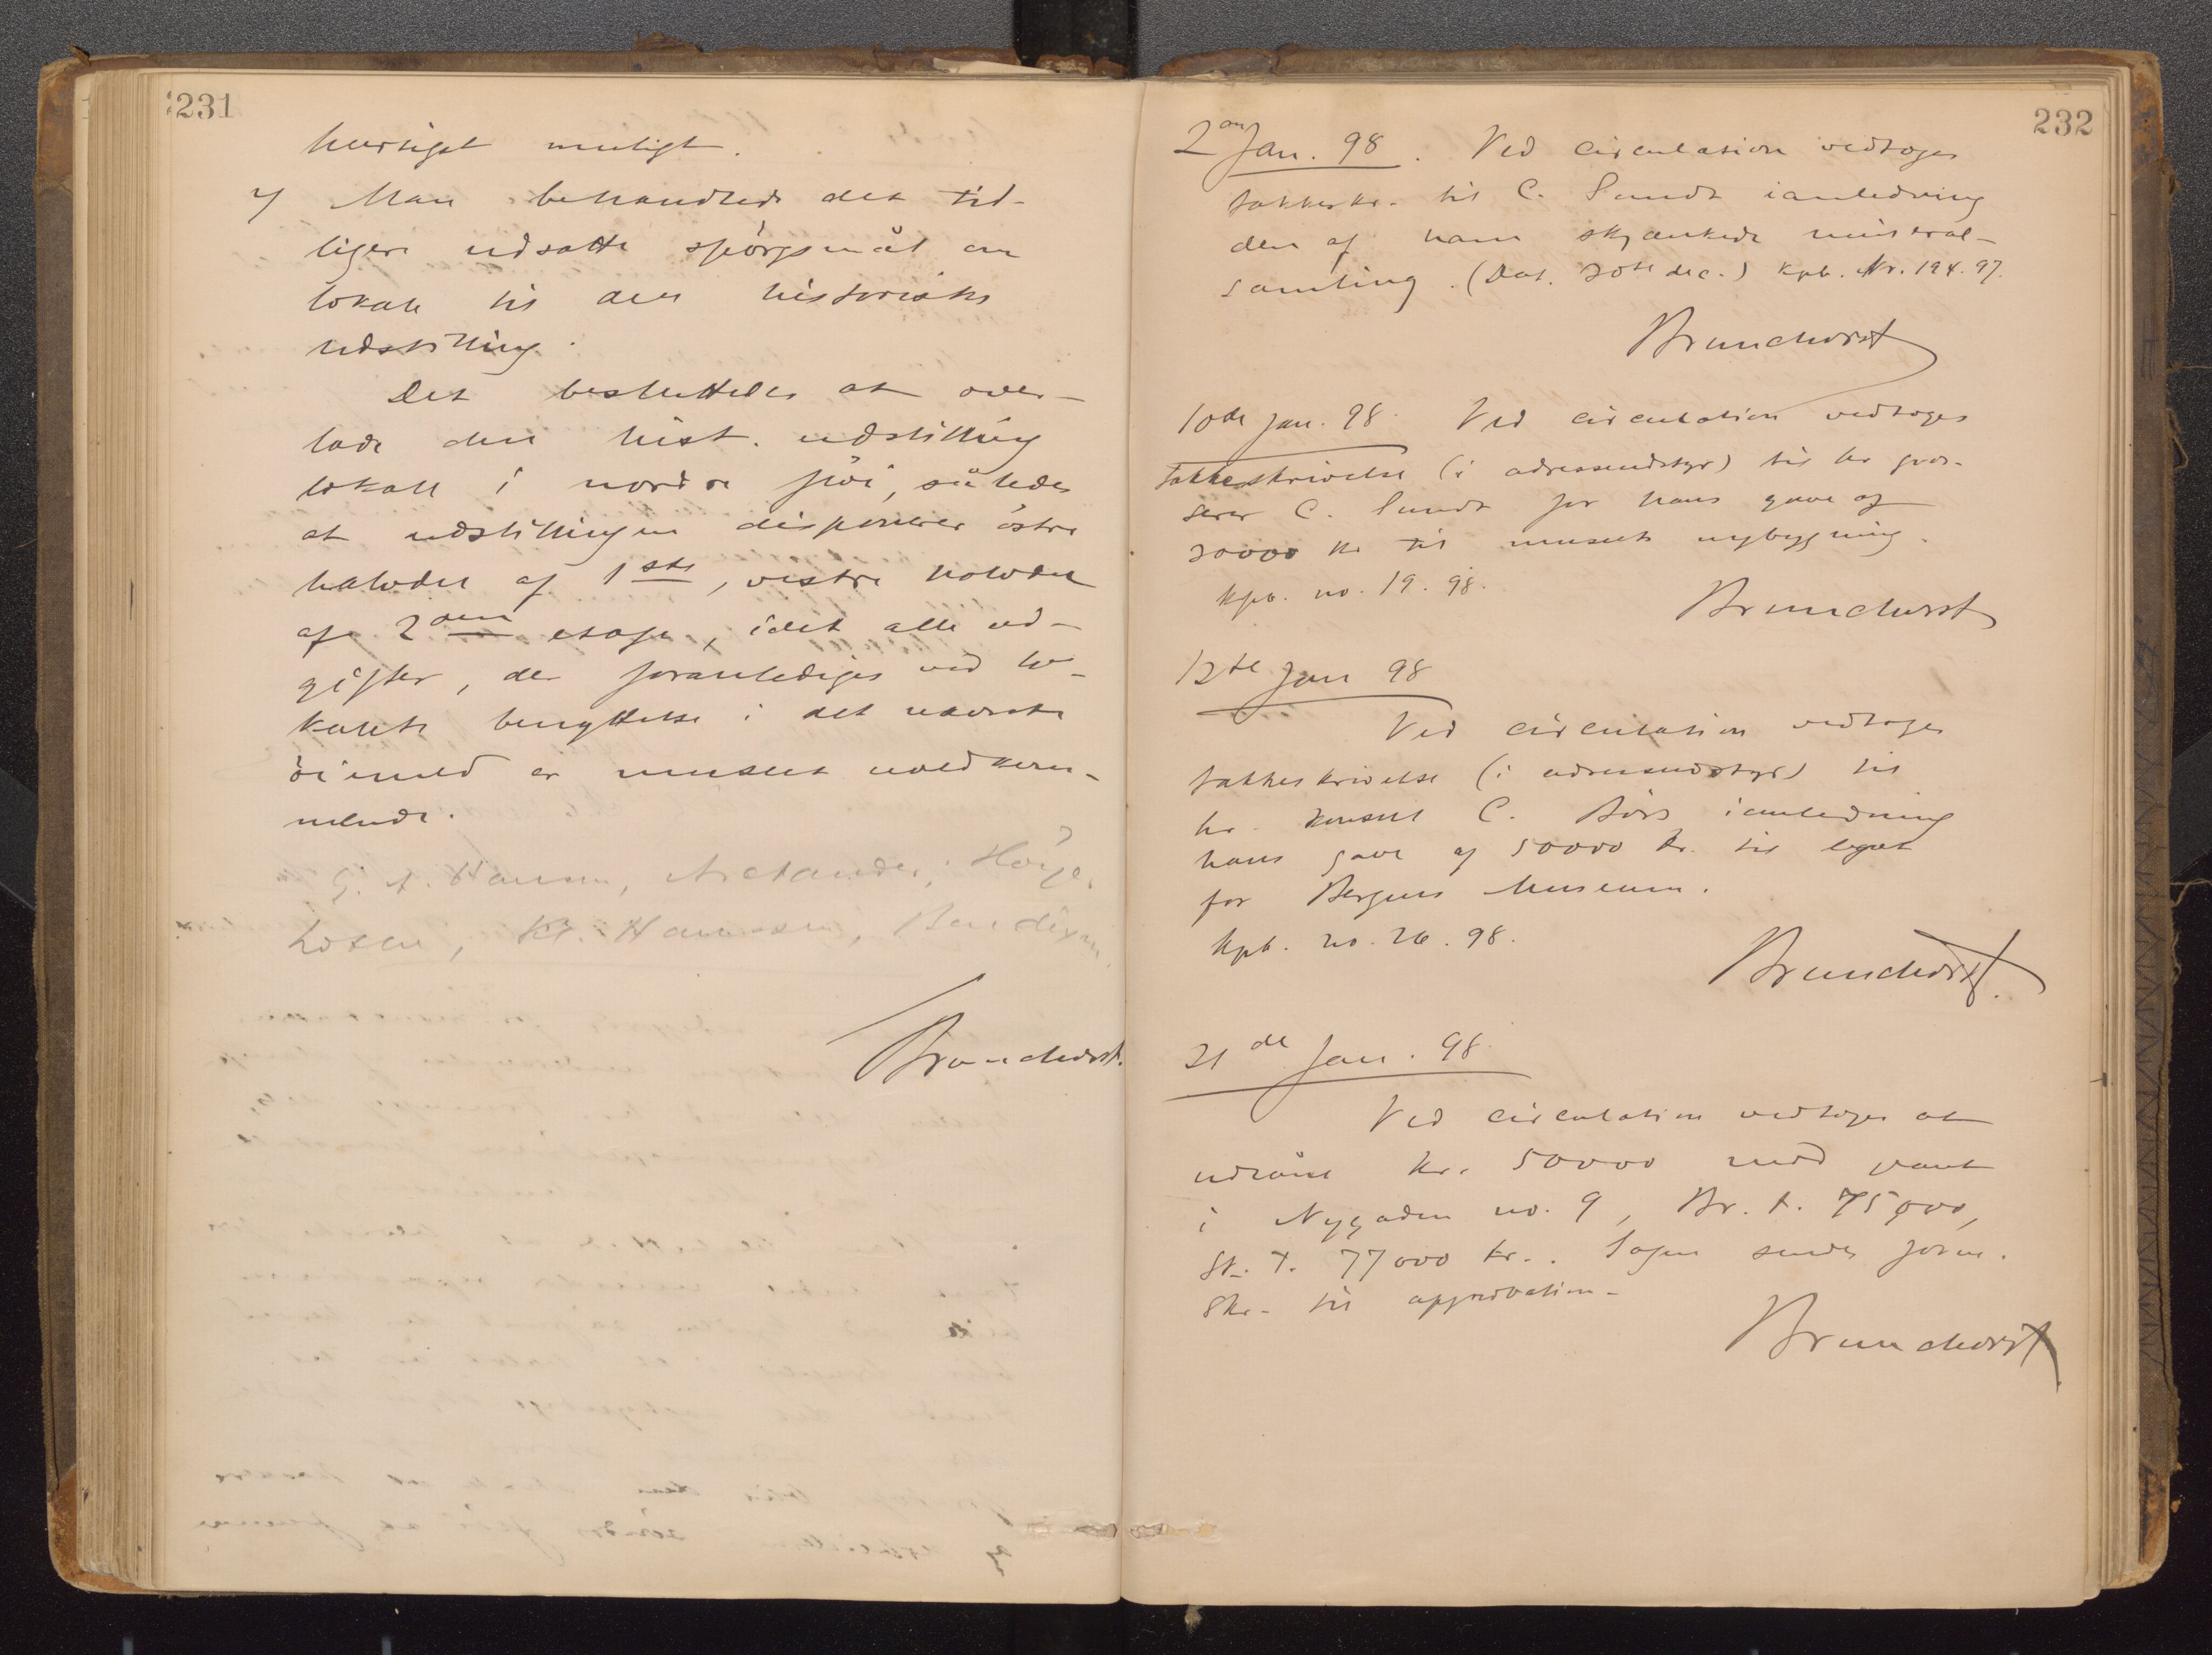 231
hurtigst muligt.
7 Man behandlede det tid-
ligere udsatte spörgsmål om
lokale til den historiske
udstilling.
Det besluttedes at over-
lade den hist. udstilling
lokale i nordre flöi, således
at udstillingen disponerer östre
halvdel af 1ste, vestre halvdel
af 2den etage, idet alle ud-
gifter, der foranlediges ved lo-
kalets benyttelse i det nævnte
öiemed er museet uvedkom-
mende.
G. A. Hansen, Arctander,
Lexau, Kl. Hanssen, Bendixen
Brunchorst.
232
2en Jan. 98. Ved circulation vedtoges
takkeskr. til C. Sundt ianledning
den af ham skjænkede mineral-
samling. (Dat. 30te dec.) Kpb. Nr. 194. 97.
Brunchorst
10de Jan. 98. Ved circulation vedtoges
takkeskrivelse (i adresseudstyr) til hr gros-
serer C. Sundt for hans gave af
30000 kr til museets nybygning.
Kpb. no. 19. 98.
Brunchorst
12te Jan 98
Ved circulation vedtoges
takkeskrivelse (i adresseudstyr) til
hr. konsul C. Börs ianledning
hans gave af 50000 kr. til legat
for Bergens Museum.
Kpb. no. 26. 98.
Brunchorst.
21de Jan. 98.
Ved circulation vedtoges at
udlåne kr. 50000 mod pant
i Nygaden no. 9, Br. t. 75,000,
Sk. t. 77000 kr.. Sagen sendes form.
skr. til approbation.
Brunchorst